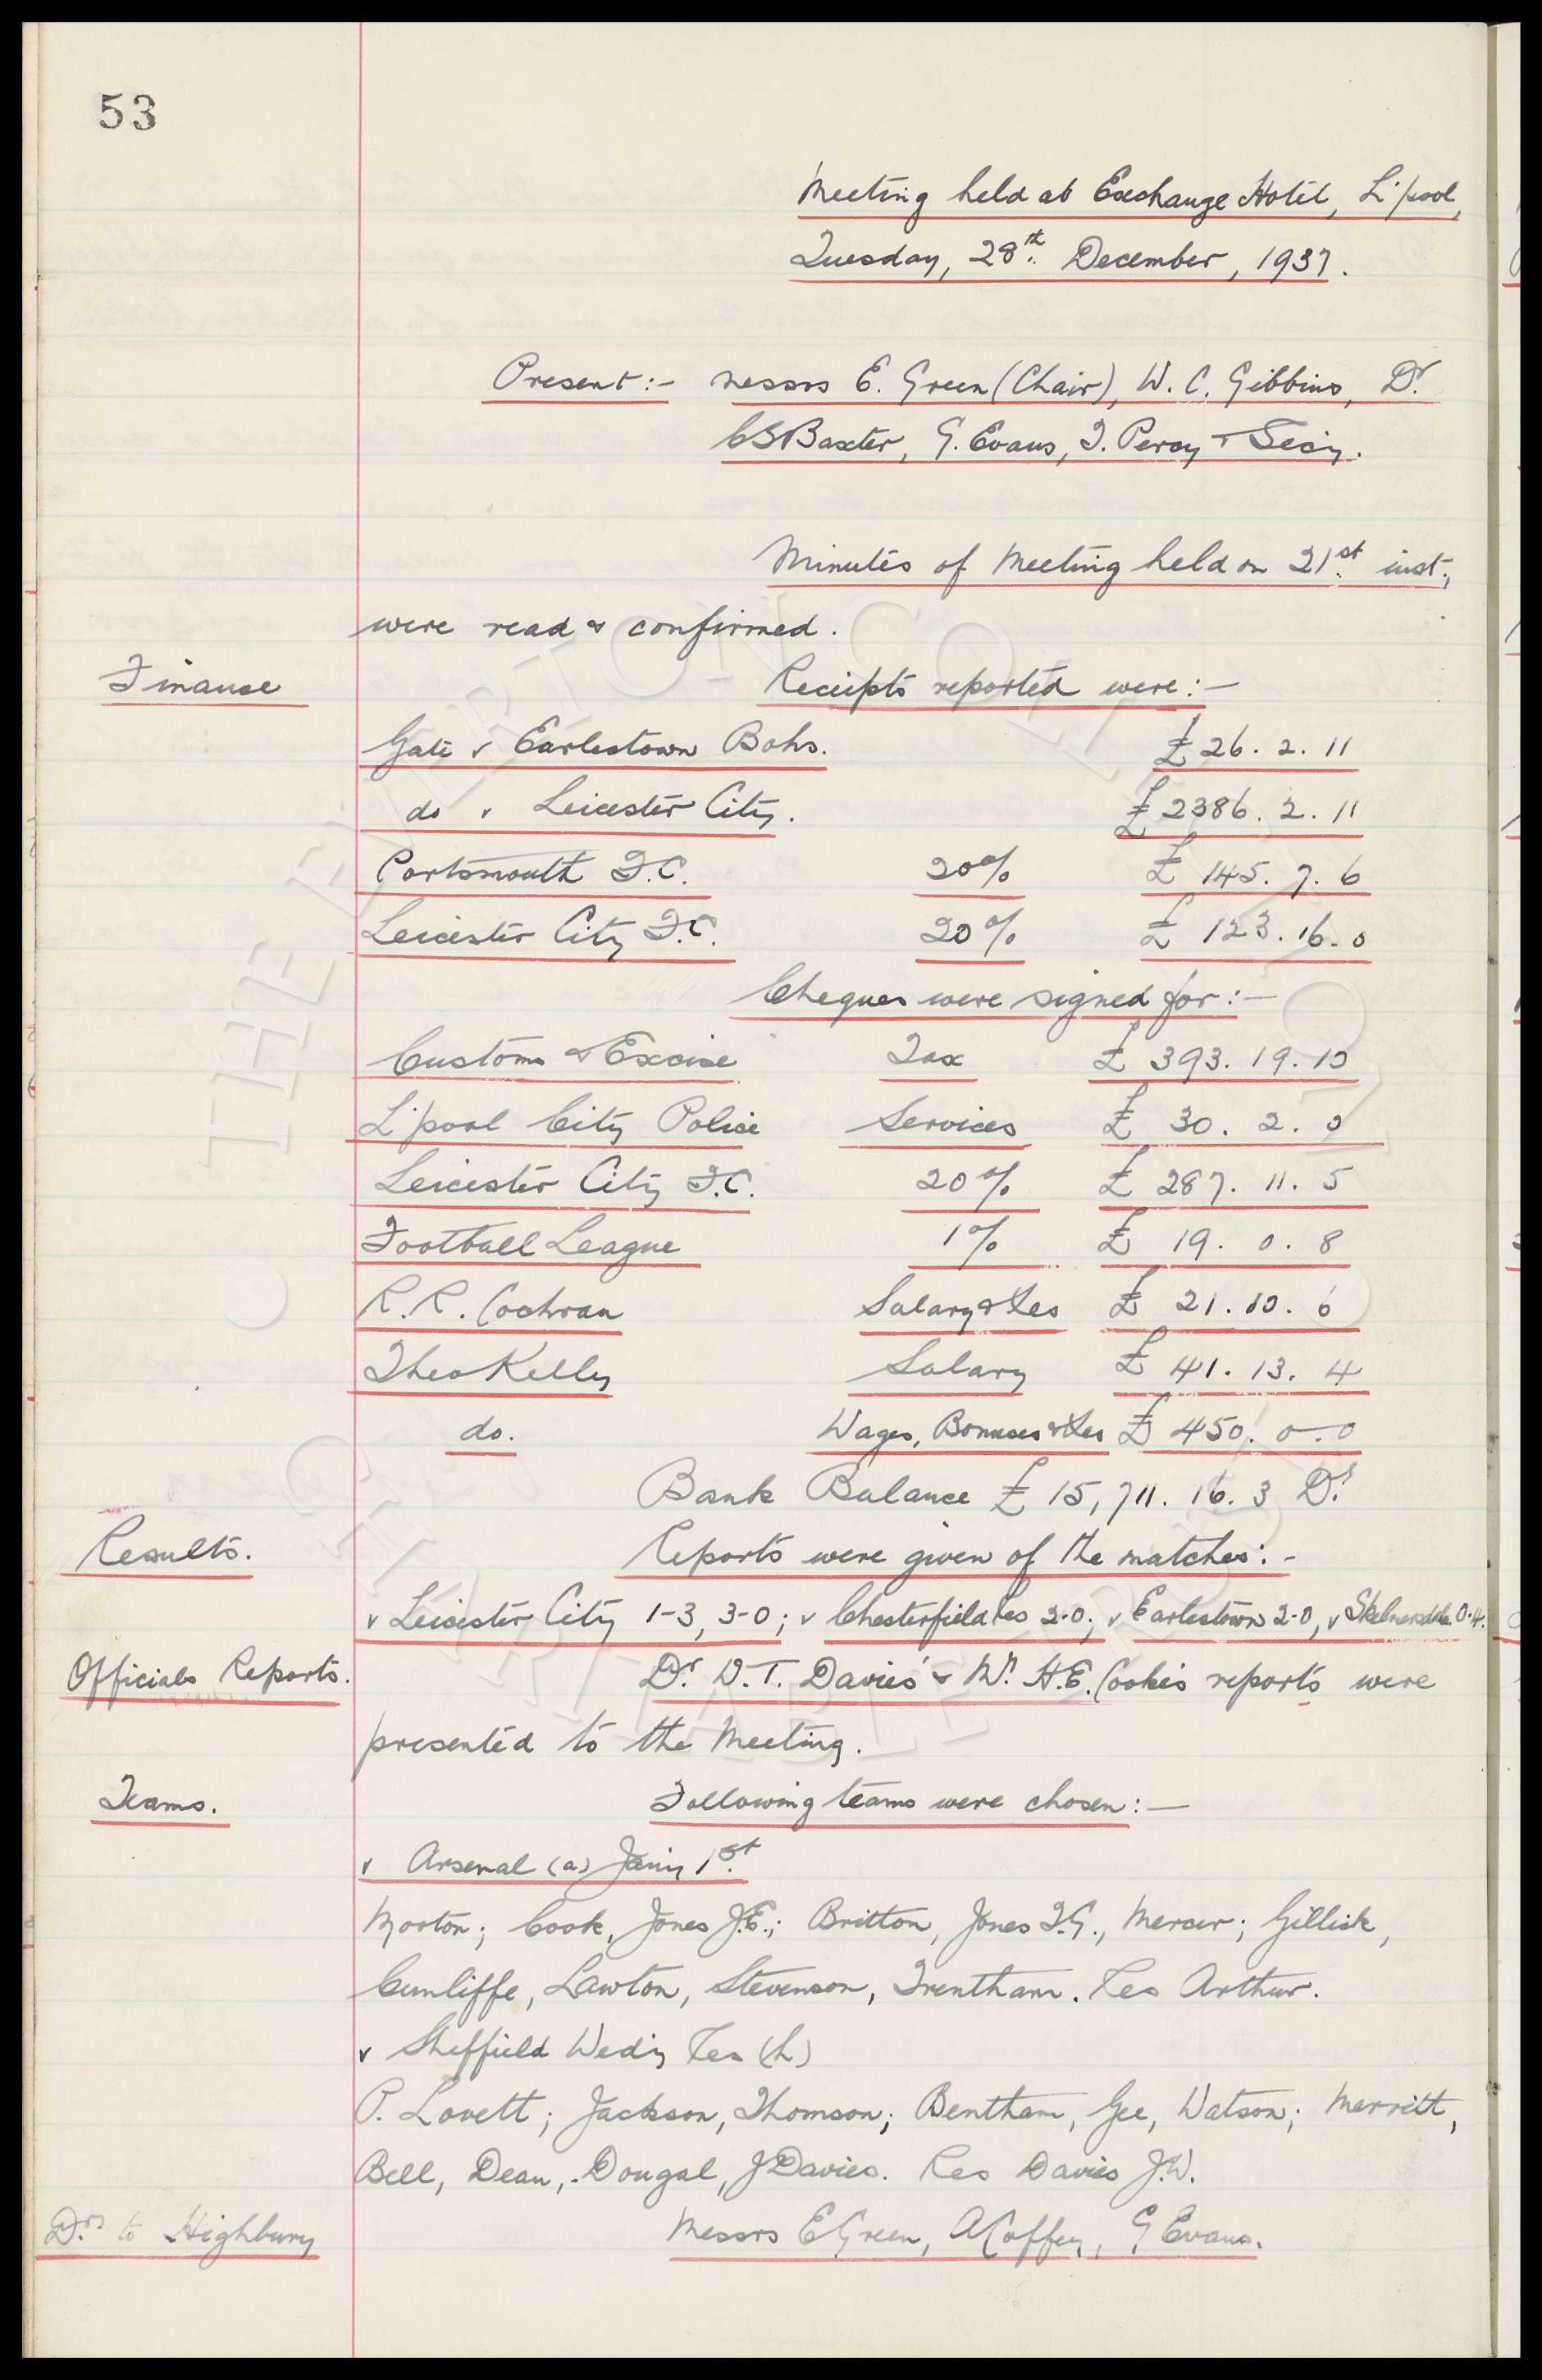 53
Meeting held at Exchange Hotel, L'pool,
Tuesday, 28th. December, 1937.
Present:- Messrs E. Green (Chair), W. C. Gibbins, Dr.
CSBaxter, G. Evans, T. Percy & Sec'y.
Minutes of Meeting held on 21st. inst.,
were read & confirmed.
Finance
Receipts reported were:-
Gate v Earlestown Bohs. £26. 2. 11
do v Leicester City. £2386. 2. 11
Portsmouth F.C. 20% £ 145. 7. 6
Leicester City F.C. 20% £ 123. 16. 0
Cheques were signed for:-
Customs & Excise Tax £ 393. 19. 10
L'pool City Police Services £ 30. 2. 0
Leicester City F.C. 20% £ 287. 11. 5
Football League 1% £ 19. 0. 8
R. R. Cochran Salary & Xes £ 21. 10. 0
Theo Kelly Salary £ 41. 13. 4
do. Wages, Bonuses & Xes £ 450. 0. 0
Bank Balance £ 15,711. 16. 3 Dr.
Results.
Reports were given of the matches:-
v Leicester City 1-3, 3-0; v Chesterfield Res 2-0; v Earlestown 2-0, v Skelmersdale 0-4.
Officials Reports.
Dr. D. T. Davies' & Mr. H.E. Cooke's reports were
presented to the Meeting.
Teams.
Following teams were chosen:-
v Arsenal (a) Jan'y 1st.
Morton; Cook, Jones J.E.; Britton, Jones T.G., Mercer; Gillick,
Cunliffe, Lawton, Stevenson, Trentham. Res Arthur.
v Sheffield Wed'y Res (h)
P. Lovett; Jackson, Thomson; Bentham, Gee, Watson; Merritt,
Bell, Dean, Dougal, J Davies. Res Davies J.W.
Drs to Highbury
Messrs E Green, A Coffey, G Evans.